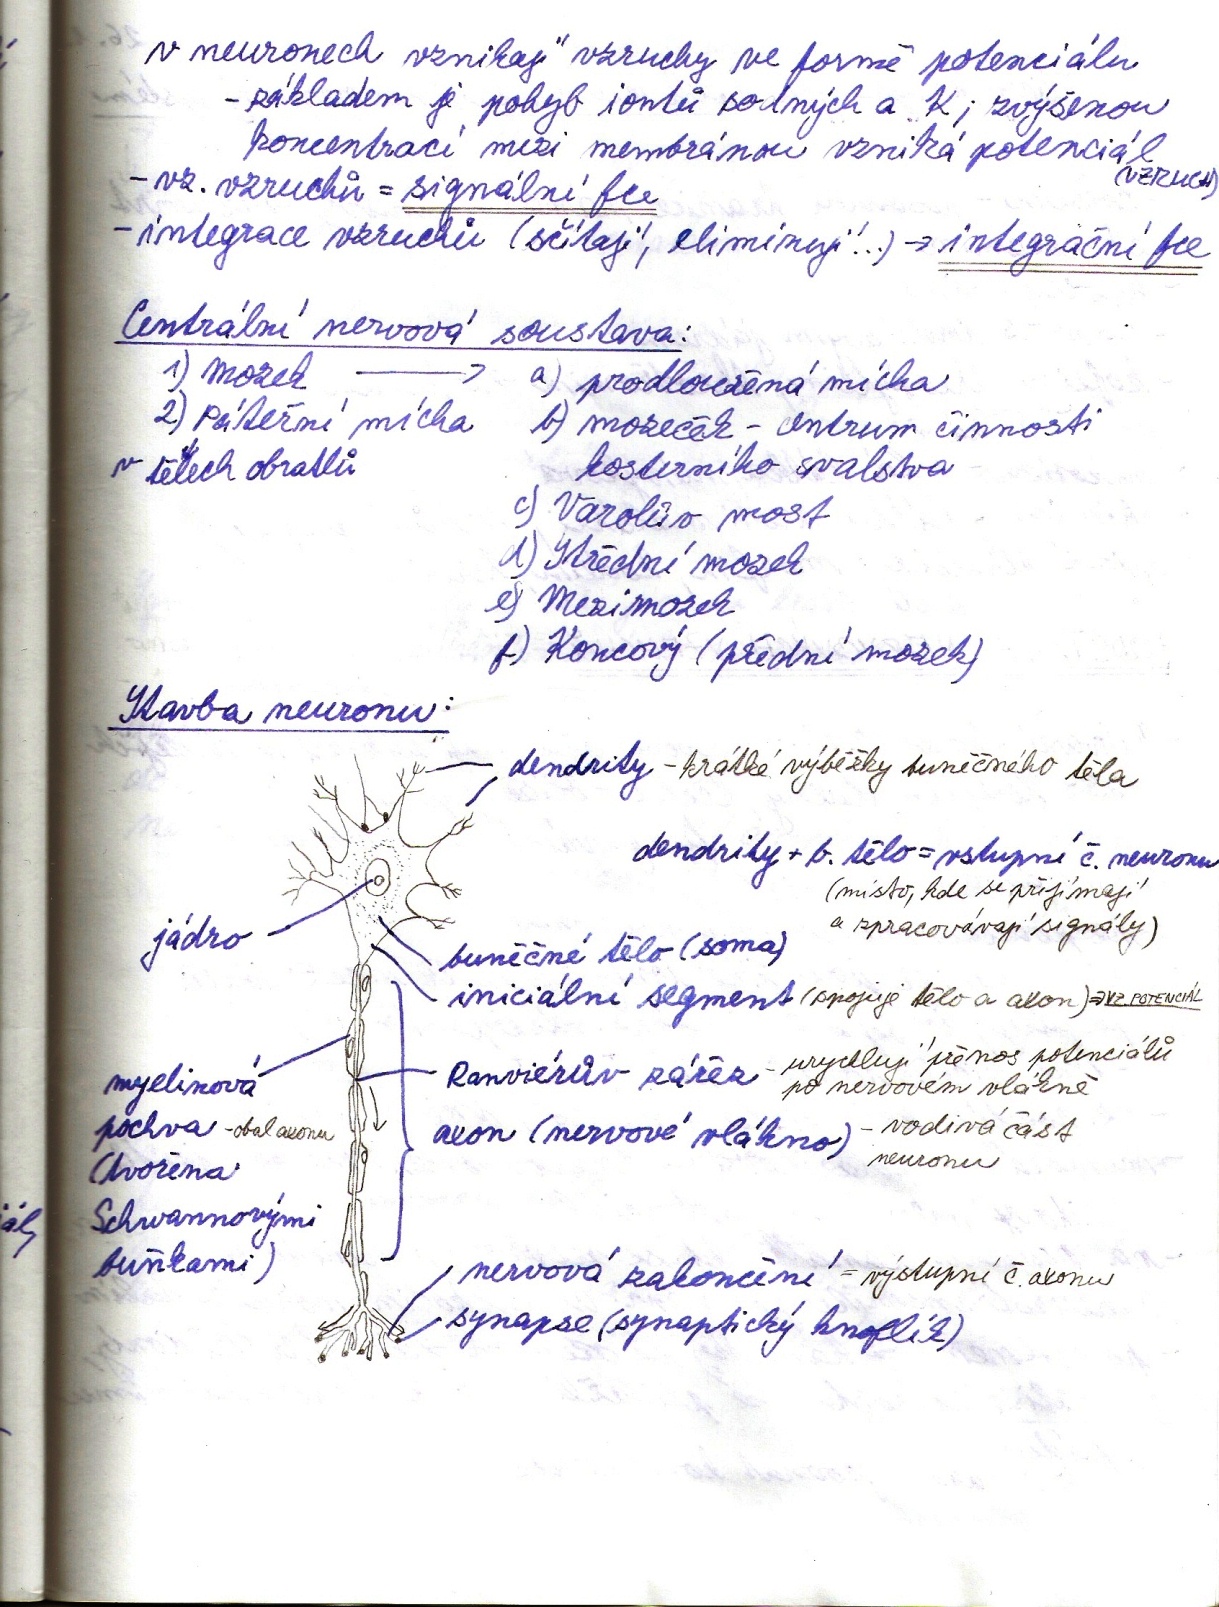 v neuronech vznikají vzruchy ve formě potenciálu
- základem je pohyb iontů sodných a K; zvýšenou
koncentrací mezi membránou vzniká potenciál
(VZRUCH)
- vz. vzruchů = signální fce
- integrace vzruchů (sčítají, eliminují...) → integrační fce
Centrální nervová soustava:
1) Mozek → a) prodloužená mícha
2) Páteřní mícha b) mozeček - centrum činnosti
v tělech obratlů kosterního svalstva
c) Varolův most
d) Střední mozek
e) Mezimozek
f) Koncový (přední mozek)
Stavba neuronu:
dendrity - krátké výběžky buněčného těla
dendrity + b. tělo = vstupní č. neuronu
(místo, kde se přijímají
a zpracovávají signály)
jádro
buněčné tělo (soma)
iniciální segment (spojuje tělo a axon) ⇒ VZ. POTENCIÁL
Ranviérův zářez - urychlují přenos potenciálů
po nervovém vlákně
myelinová
pochva - obal axonu
(tvořena
Schwannovými
buňkami)
axon (nervové vlákno) - vodivá část
neuronu
nervová zakončení = výstupní č. axonu
synapse (synaptický knoflík)